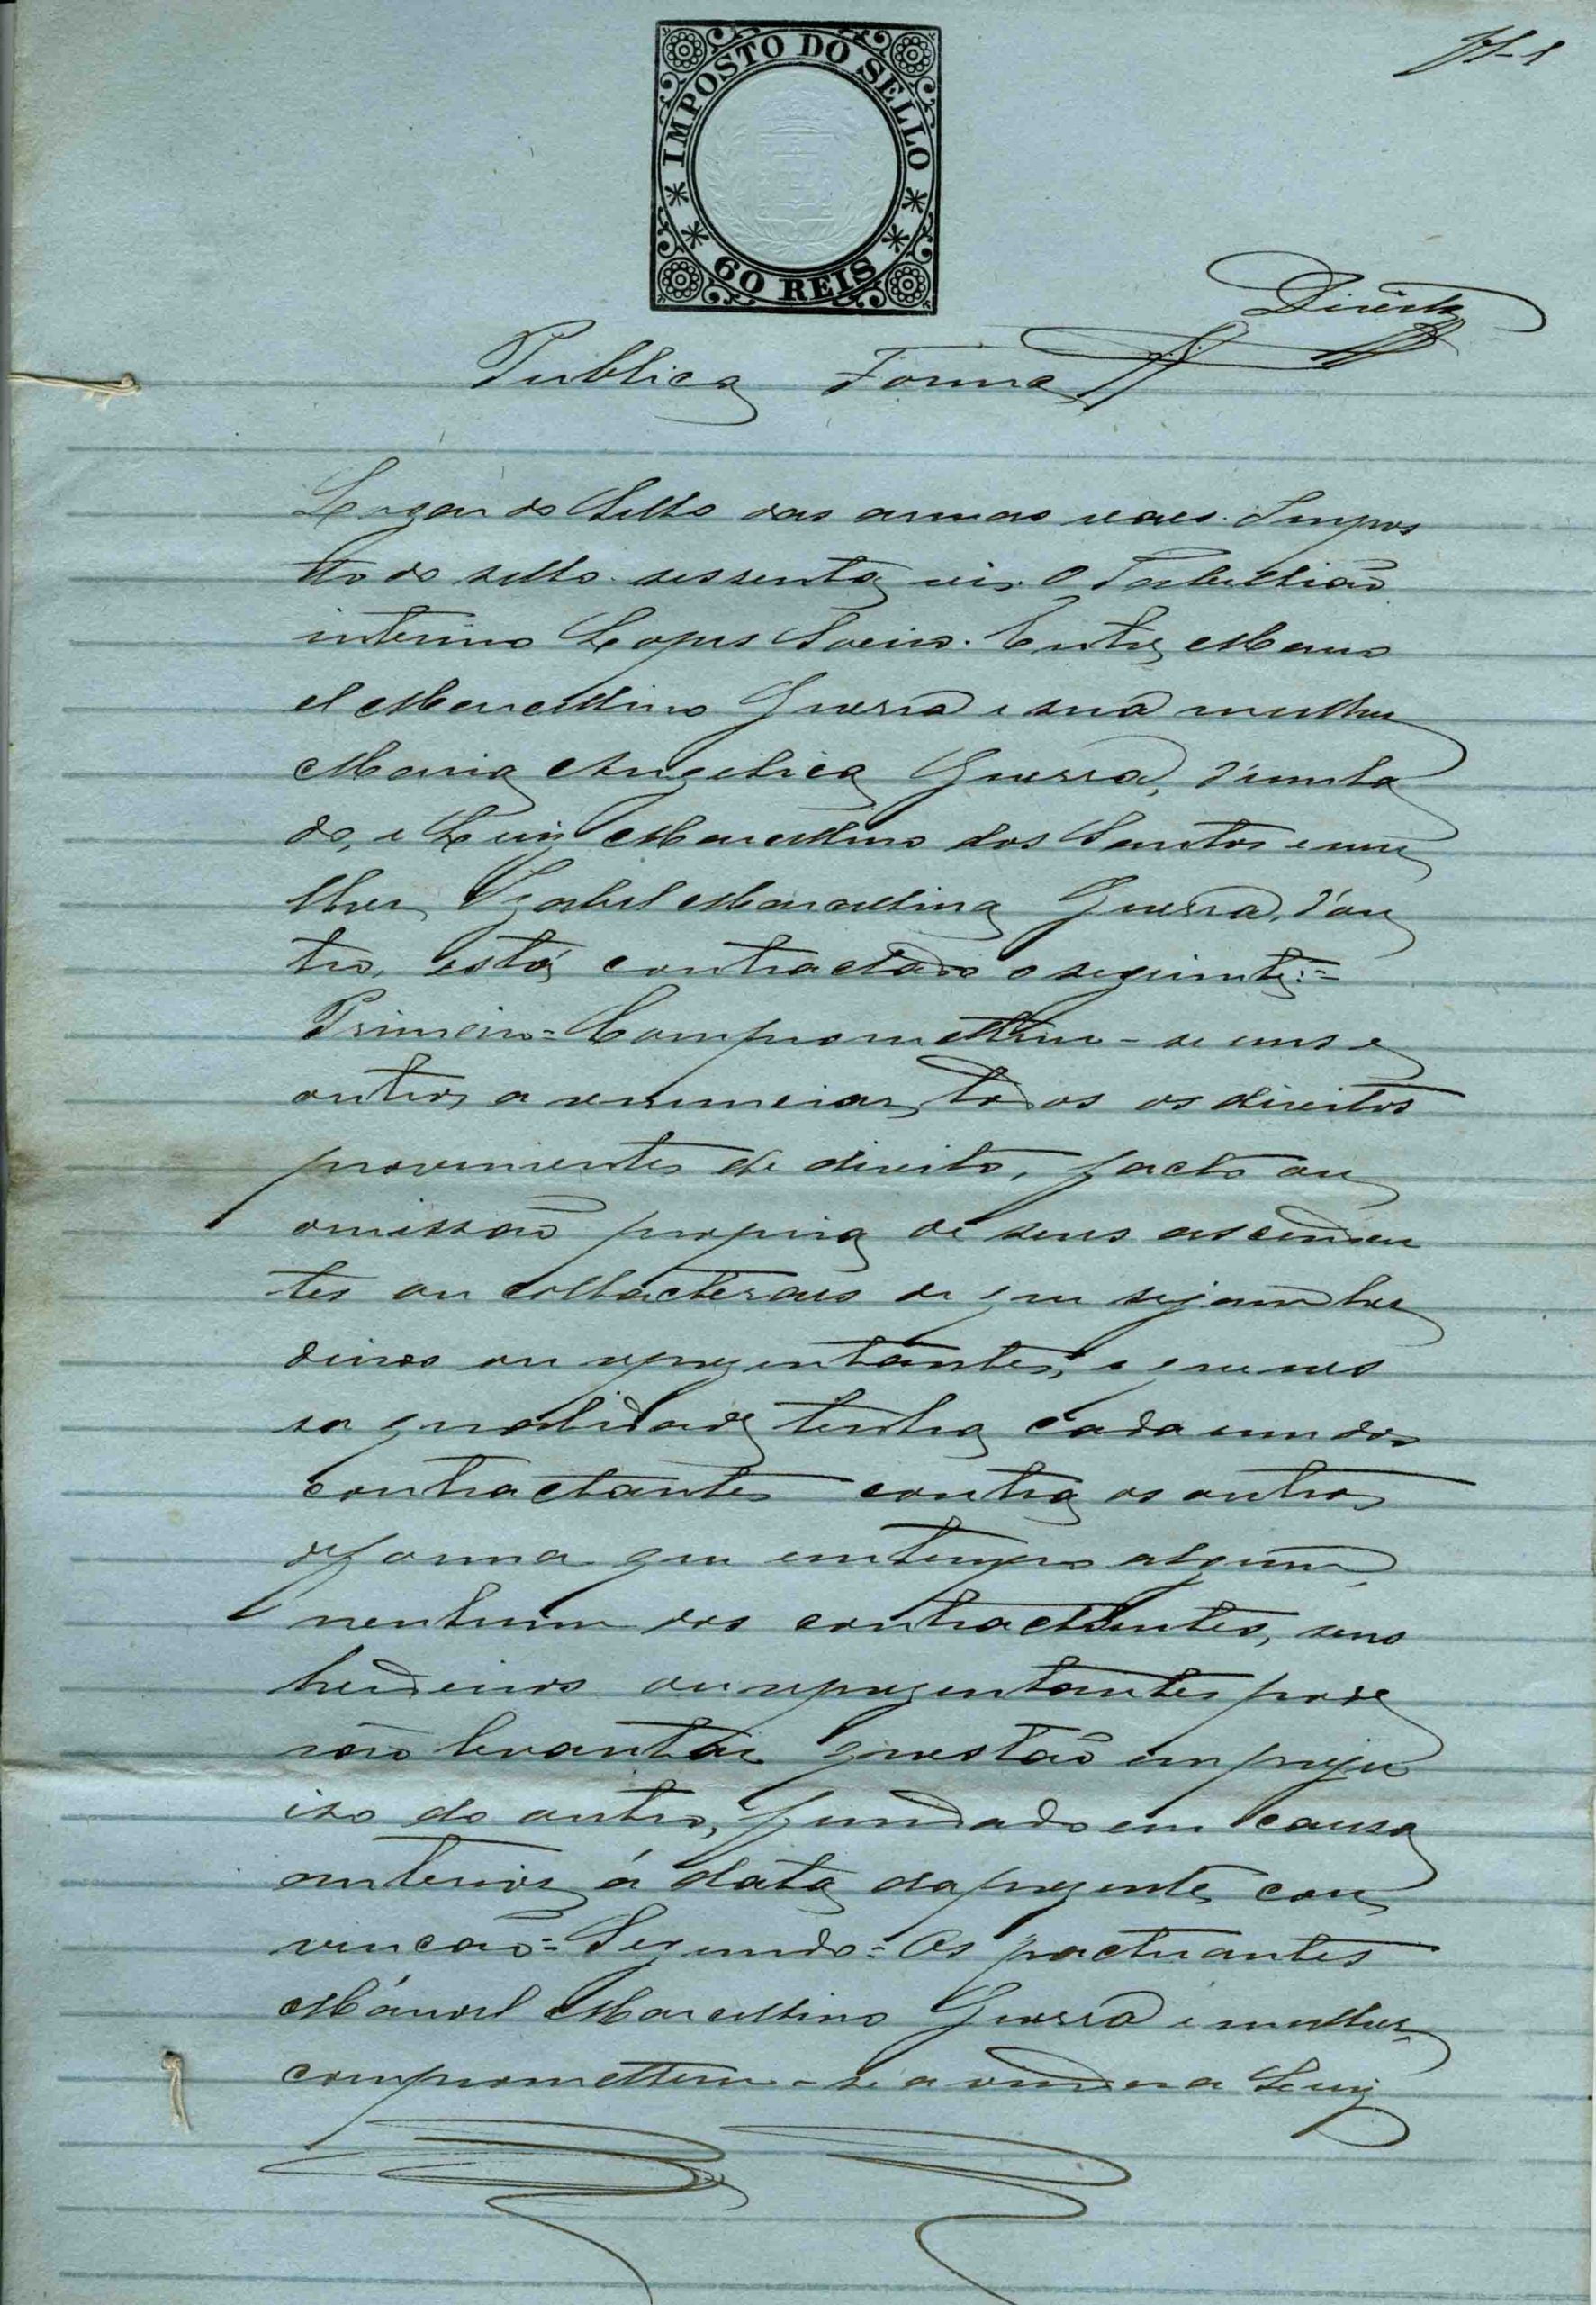 IMPOSTO DO SELLO
60 REIS
Publica Forma
Lugar do Sello das armas reaes. Impos
to do sello. sessenta reis. O Tabellião
interino Lopes Soeiro. Entre Mano
el Marcellino Guerra e sua mulher
Maria Angelica Guerra, d'um la
do, e Luiz Marcellino dos Santos e mu
lher, Izabel Marcellina Guerra, d'ou
tro, está contractado o seguinte:=
Primeiro= Comprometem-se uns e
outros a renunciar todos os direitos
provenientes de direito, facto ou
omissão propria de seus ascenden
tes ou collacteraes de que sejam her
deiros ou reprezentantes, e que nes
sa qualidade tenha cada um dos
contractantes contra os outros
de forma que em tempo algum
nenhum dos contractantes, seus
herdeiros ou reprezentantes pode
rão levantar questão em preju
iso do outro, fundado em causa
anterior á data da prezente con
vencão= Segundo= Os pactuantes
Mánoel Marcellino Guerra e mulher
compromettem-se a vender a Luiz